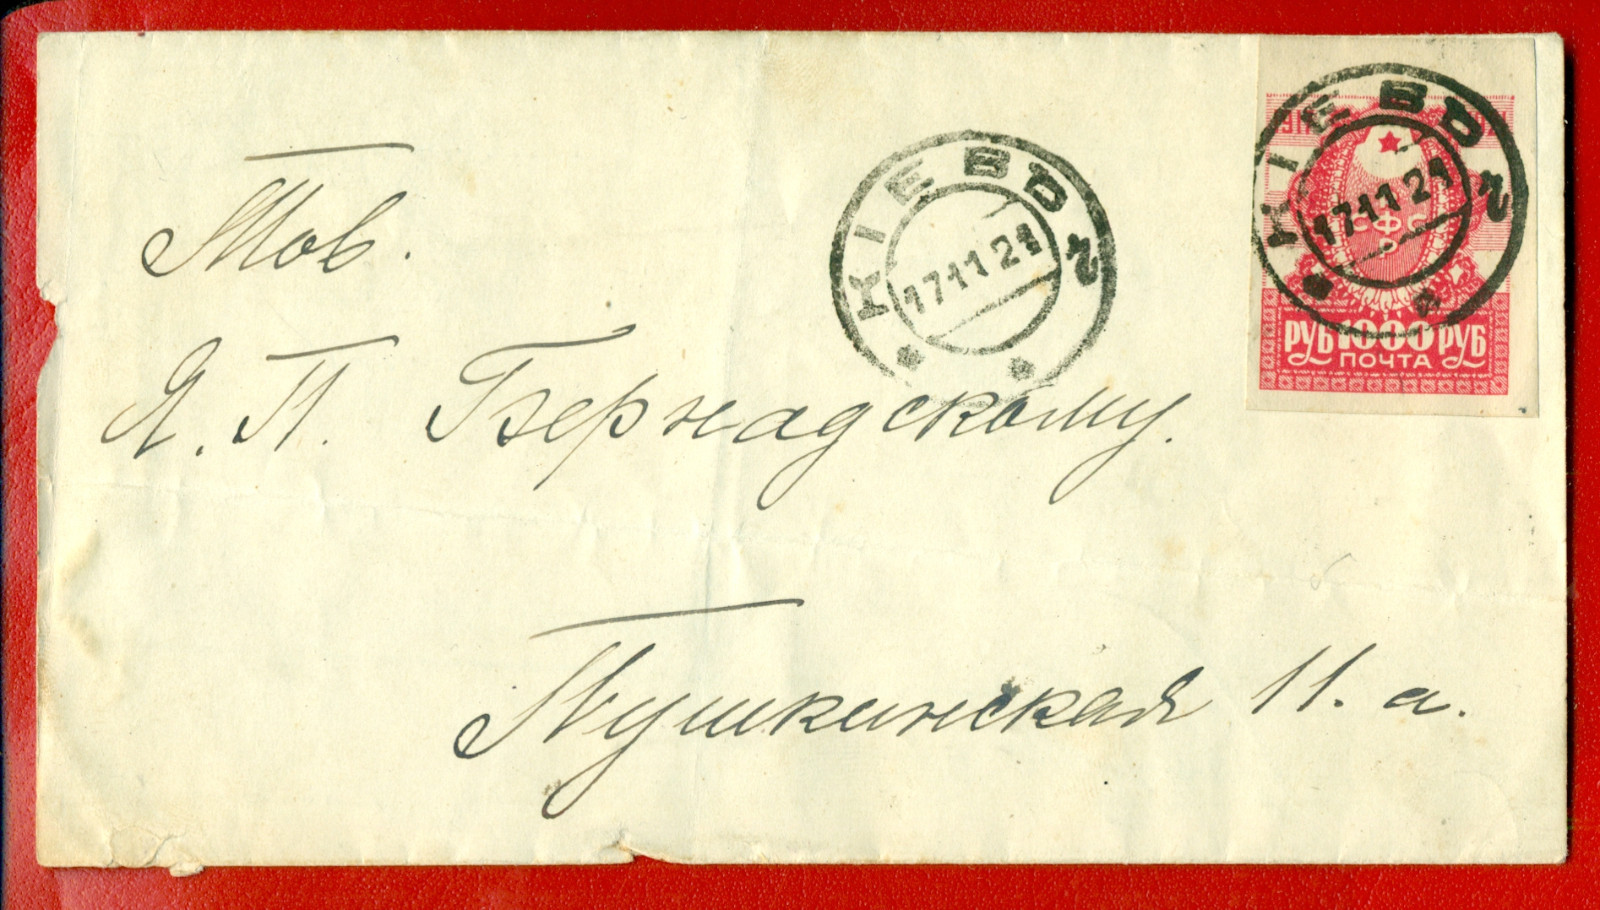 Тов.
Я. П. Бернадскому.
Пушкинская 11. а.
КІЕВЪ
17 11 21
КІЕВЪ
17 11 21
РУБ 1000 РУБ
ПОЧТА